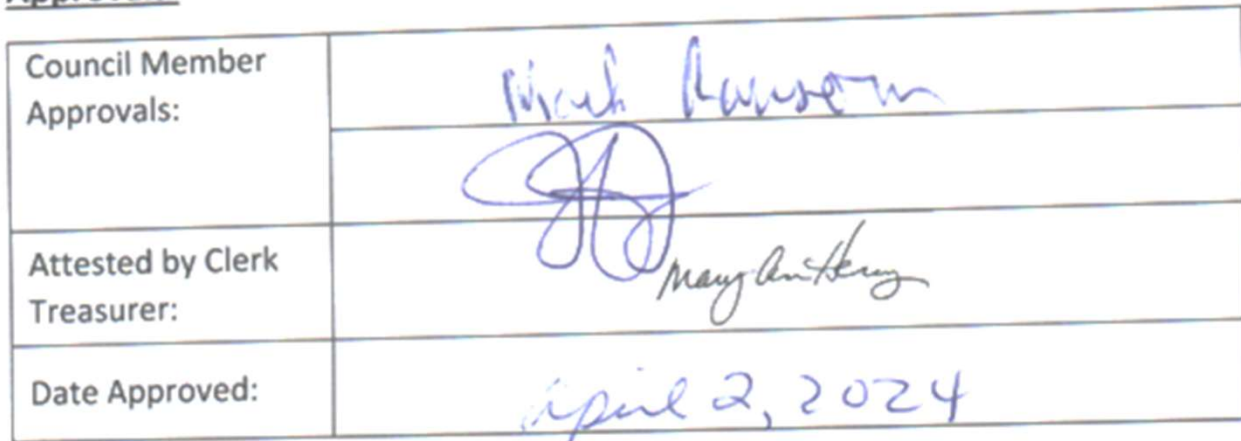 Council Member
Approvals:
Mark Ransom
Attested by Clerk
Treasurer:
Mary Ann Henry
Date Approved:
April 2, 2024